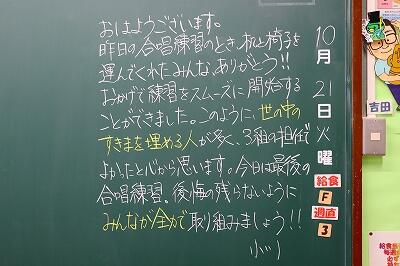 おはようございます。
昨日の合唱練習のとき、机と椅子を
運んでくれたみんな、ありがとう!!
おかげで練習をスムーズに開始する
ことができました。このように、世の中の
すきまを埋める人が多く、3組の担任で
よかったと心から思います。今日は最後の
合唱練習。後悔の残らないように
みんなが全力で取り組みましょう!!
10
月
21
日
火
曜
給食
F
週直
3
吉田